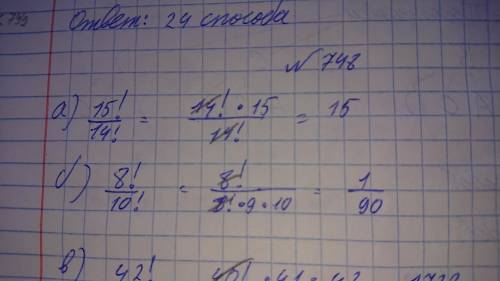 Ответ: 24 способа
№ 748
а) 15!/14! = 14! · 15/14! = 15
б) 8!/10! = 8!/8! · 9 · 10 = 1/90
в) 42!